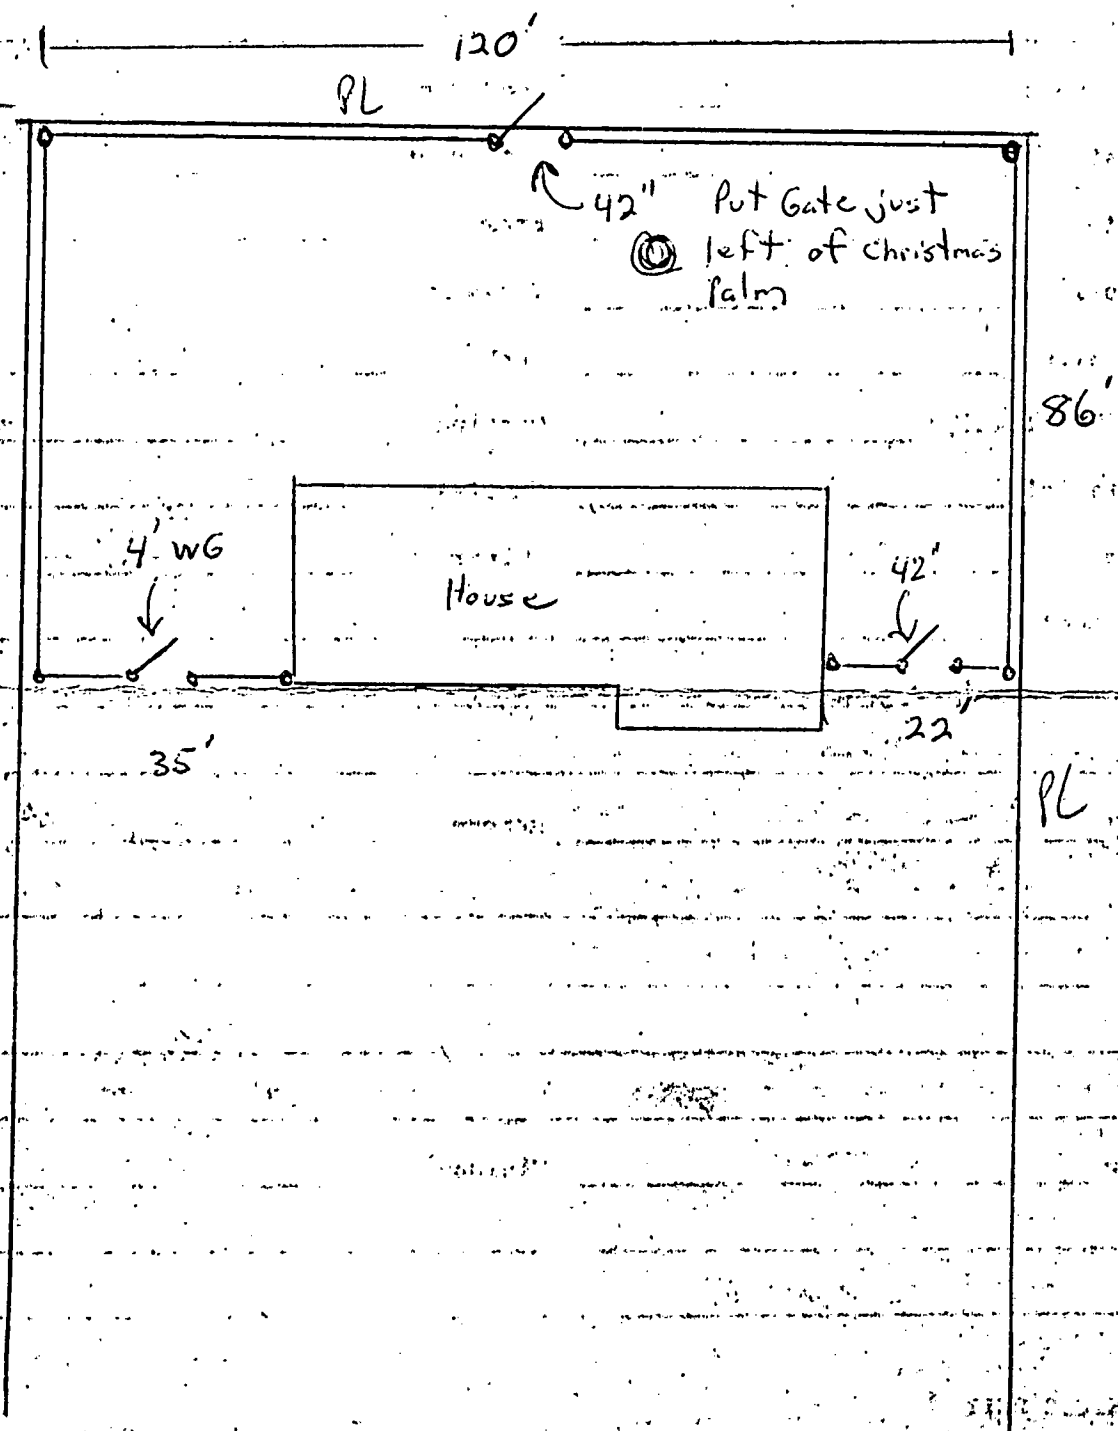 120'
PL
42" Put Gate just
left of Christmas
Palm
86'
4' WG
42"
House
35'
22'
PL